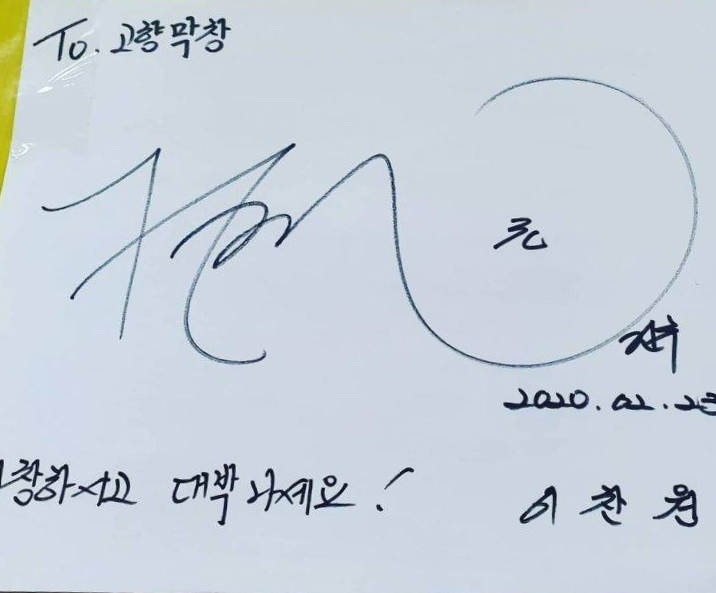 To. 고향막창
가수
2020.02.2
창하시고 대박나세요!
이찬원